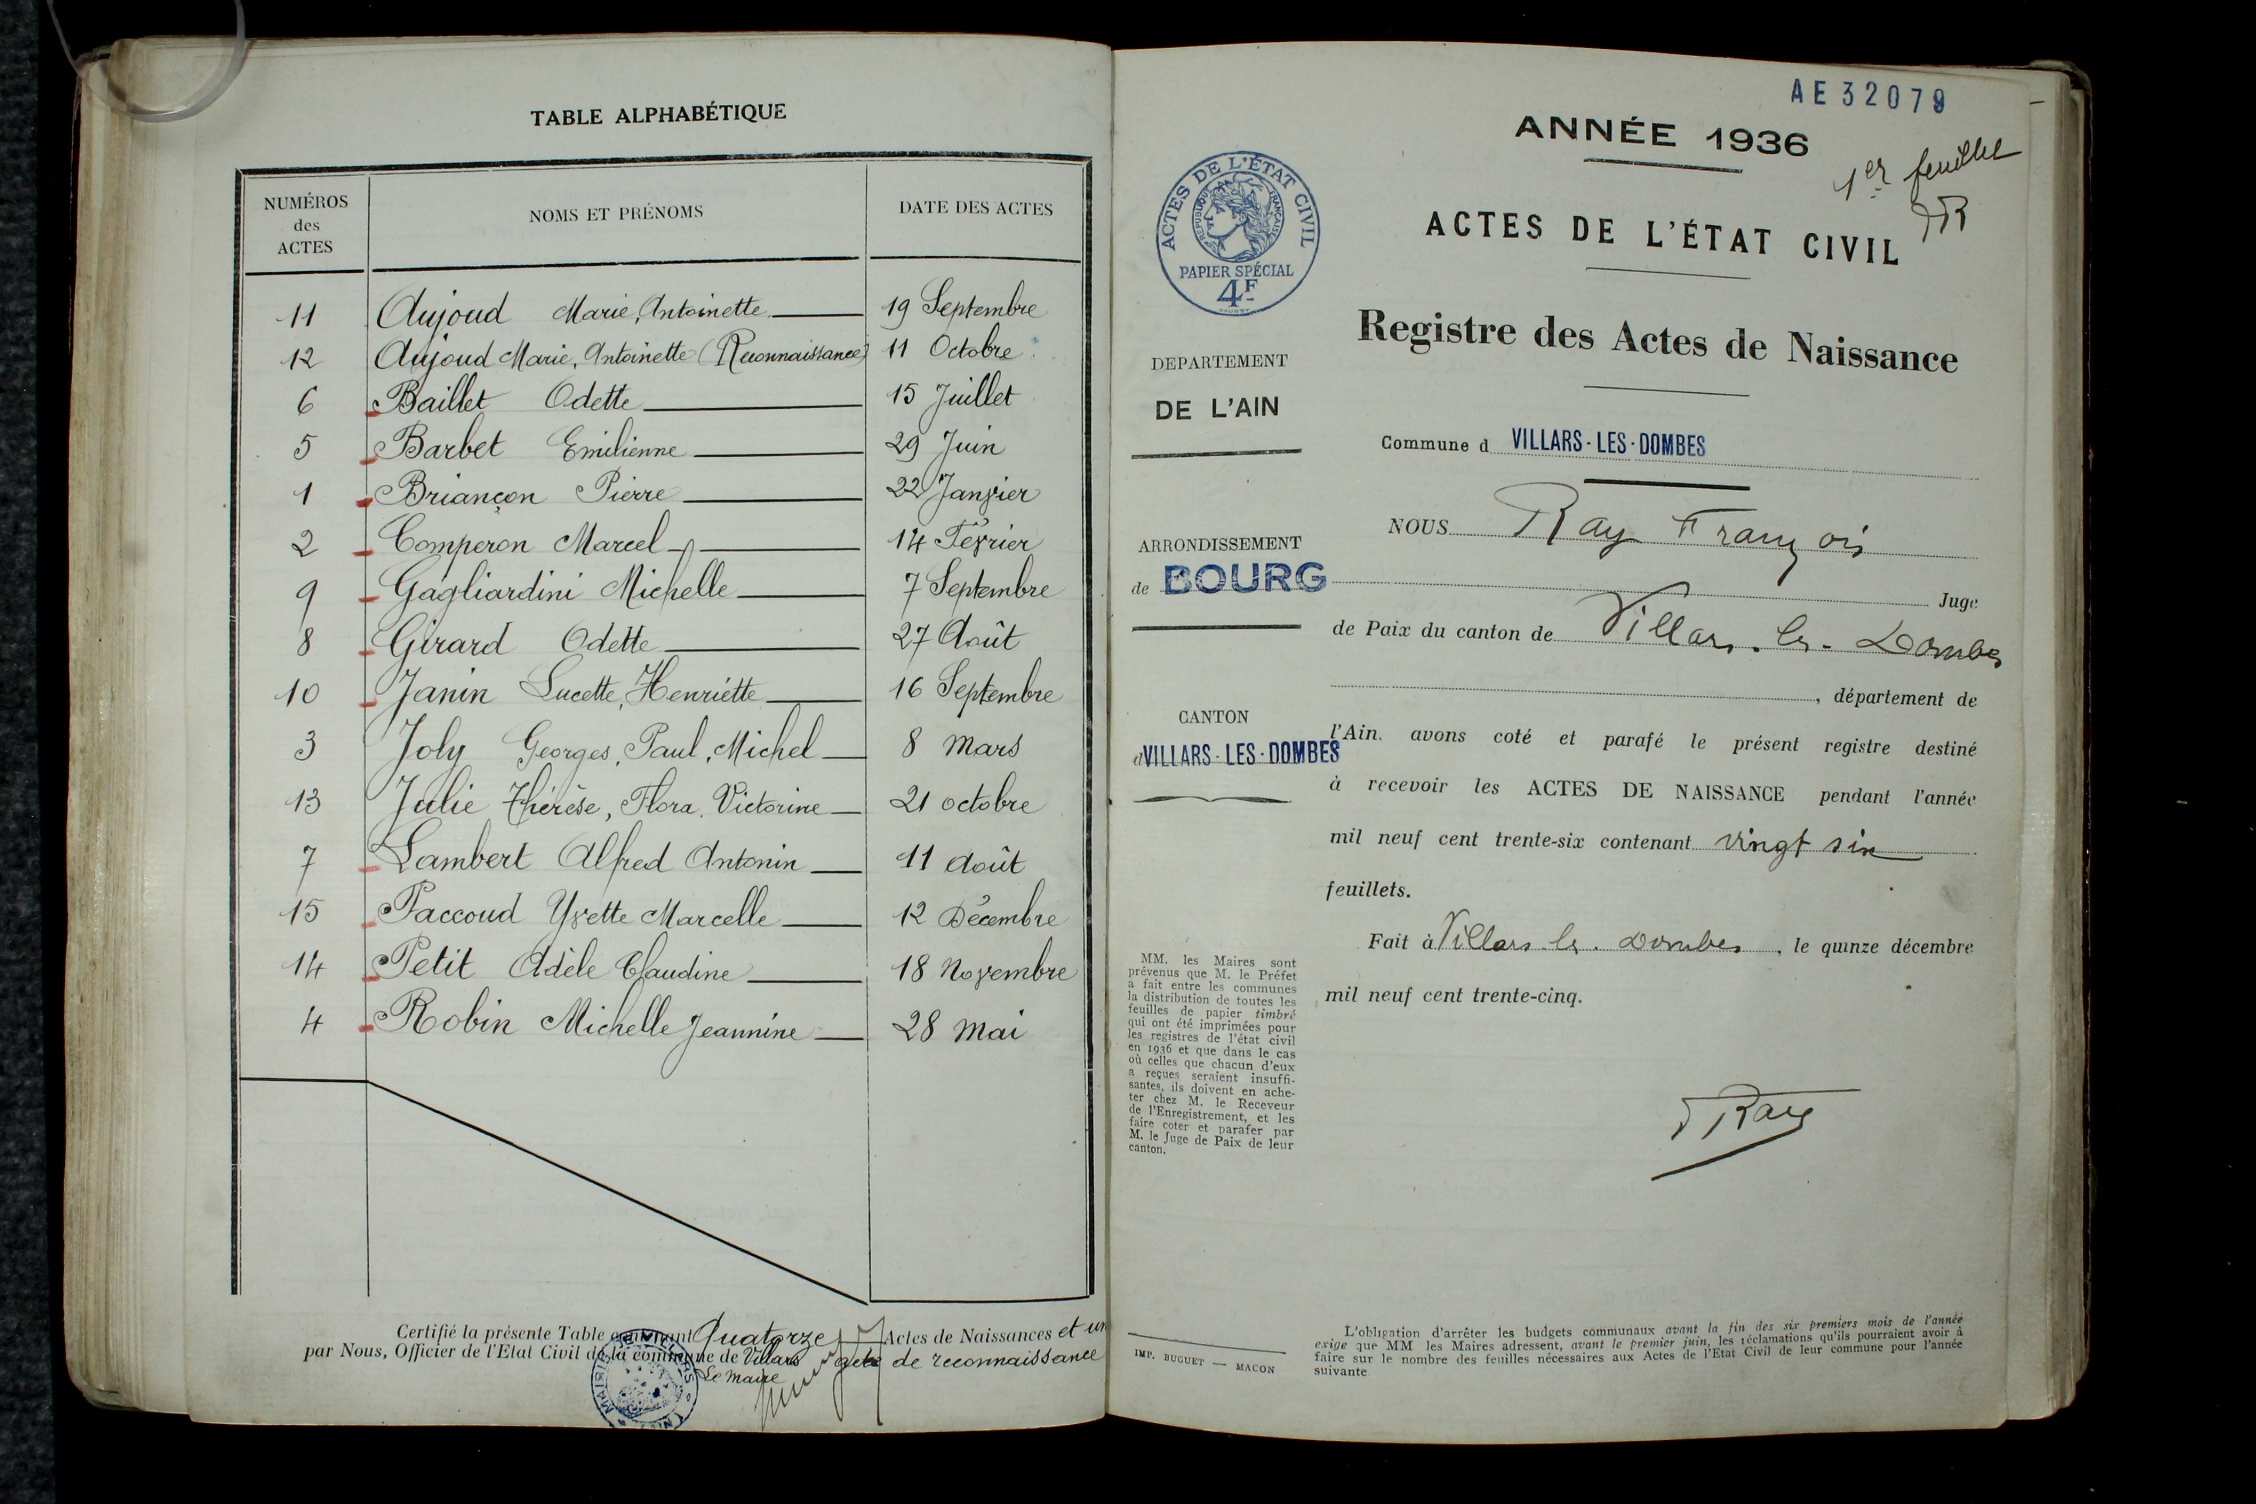 TABLE ALPHABÉTIQUE
NUMÉROS des ACTES
NOMS ET PRÉNOMS
DATE DES ACTES
11 Aujoud Marie, Antoinette 19 Septembre
12 Aujoud Marie, Antoinette (Reconnaissance) 11 Octobre
6 Baillet Odette 15 Juillet
5 Barbet Emilienne 29 Juin
1 Briançon Pierre 22 Janvier
2 Comperon Marcel 14 Février
9 Gagliardini Michelle 7 Septembre
8 Girard Odette 27 Août
10 Janin Lucette, Henriette 16 Septembre
3 Joly Georges, Paul, Michel 8 mars
13 Julie Thérèse, Flora, Victorine 21 octobre
7 Lambert Alfred Antonin 11 août
15 Paccoud Yvette Marcelle 12 Décembre
14 Petit Adèle Claudine 18 Novembre
4 Robin Michelle Jeannine 28 mai
Certifié la présente Table contenant Quatorze Actes de Naissances et un
par Nous, Officier de l'Etat Civil de la commune de Villars acte de reconnaissance
Le Maire
AE32079
ANNÉE 1936
1er feuillet
FR
ACTES DE L'ÉTAT CIVIL
RÉPUBLIQUE FRANÇAISE
PAPIER SPÉCIAL
4F
ACTES DE L'ÉTAT CIVIL
Registre des Actes de Naissance
DEPARTEMENT
DE L'AIN
Commune d VILLARS-LES-DOMBES
ARRONDISSEMENT
de BOURG
CANTON
d VILLARS-LES-DOMBES
MM. les Maires sont
prévenus que M. le Préfet
a fait entre les communes
la distribution de toutes les
feuilles de papier timbré
qui ont été imprimées pour
les registres de l'état civil
en 1936 et que dans le cas
où celles que chacun d'eux
a reçues seraient insuffi-
santes, ils doivent en ache-
ter chez M. le Receveur
de l'Enregistrement, et les
faire coter et parafer par
M. le Juge de Paix de leur
canton.
NOUS Ray François
Juge
de Paix du canton de Villars-les-Dombes
, département de
l'Ain. avons coté et parafé le présent registre destiné
à recevoir les ACTES DE NAISSANCE pendant l'année
mil neuf cent trente-six contenant vingt six
feuillets.
Fait à Villars les Dombes, le quinze décembre
mil neuf cent trente-cinq.
F Ray
IMP. BUGUET — MACON
L'obligation d'arrêter les budgets communaux avant la fin des six premiers mois de l'année
exige que MM les Maires adressent, avant le premier juin, les réclamations qu'ils pourraient avoir à
faire sur le nombre des feuilles nécessaires aux Actes de l'Etat Civil de leur commune pour l'année
suivante